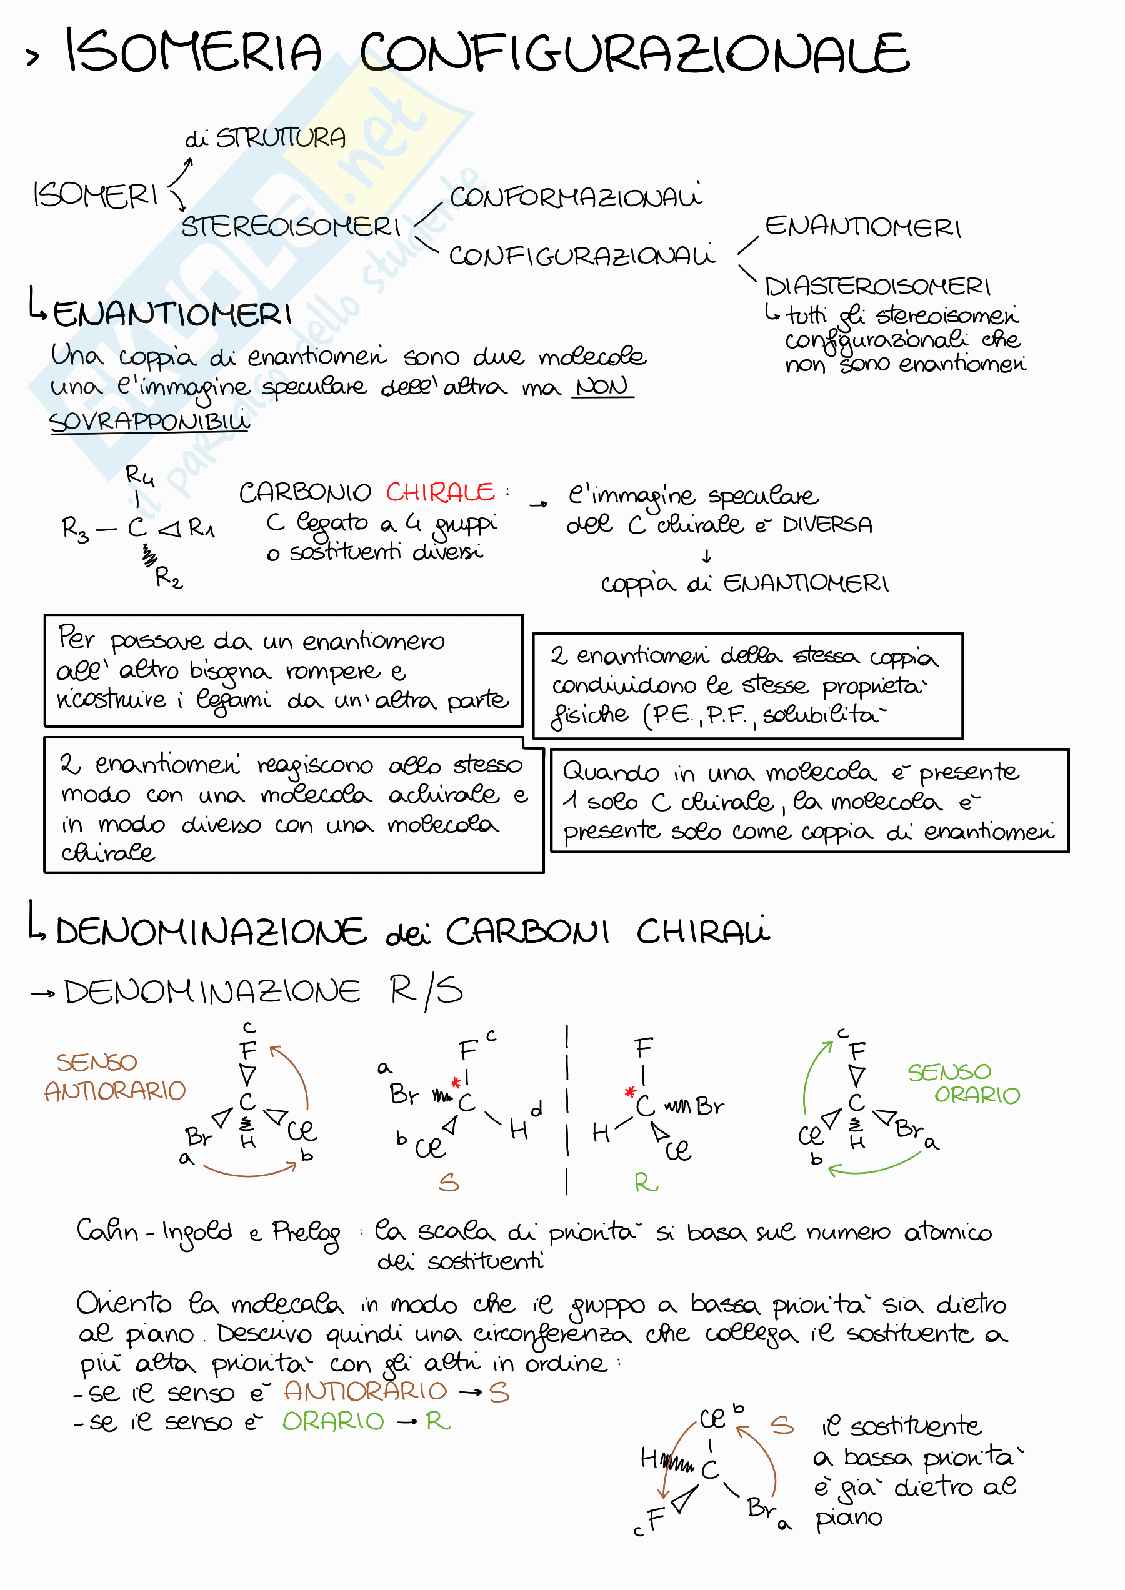 > ISOMERIA CONFIGURAZIONALE
di STRUTTURA
ISOMERI
STEREOISOMERI
CONFORMAZIONALI
CONFIGURAZIONALI
ENANTIOMERI
DIASTEROISOMERI
↳ tutti gli stereoisomeri
configurazionali che
non sono enantiomeri
↳ ENANTIOMERI
Una coppia di enantiomeri sono due molecole
una l'immagine speculare dell'altra ma NON
SOVRAPPONIBILI
R4
R3 – C R1
R2
CARBONIO CHIRALE:
C legato a 4 gruppi
o sostituenti diversi
→ l'immagine speculare
del C chirale è DIVERSA
↓
coppia di ENANTIOMERI
Per passare da un enantiomero
all'altro bisogna rompere e
ricostruire i legami da un'altra parte
2 enantiomeri della stessa coppia
condividono le stesse proprietà
fisiche (P.E., P.F., solubilità
2 enantiomeri reagiscono allo stesso
modo con una molecola achirale e
in modo diverso con una molecola
chirale
Quando in una molecola è presente
1 solo C chirale, la molecola è
presente solo come coppia di enantiomeri
↳ DENOMINAZIONE dei CARBONI CHIRALI
→ DENOMINAZIONE R/S
SENSO
ANTIORARIO
c
F
C
Br H Cl
a b
F c
a
Br * C
d
H
b Cl
S
F
* C Br
H
Cl
R
c
F
C
Cl H Br
b a
SENSO
ORARIO
Cahn-Ingold e Prelog: la scala di priorità si basa sul numero atomico
dei sostituenti
Oriento la molecola in modo che il gruppo a bassa priorità sia dietro
al piano. Descrivo quindi una circonferenza che collega il sostituente a
più alta priorità con gli altri in ordine:
- se il senso è ANTIORARIO → S
- se il senso è ORARIO → R
Cl b
H C
c F Br a
S
il sostituente
a bassa priorità
è già dietro al
piano
SKUOLA.net
il paradiso dello studente